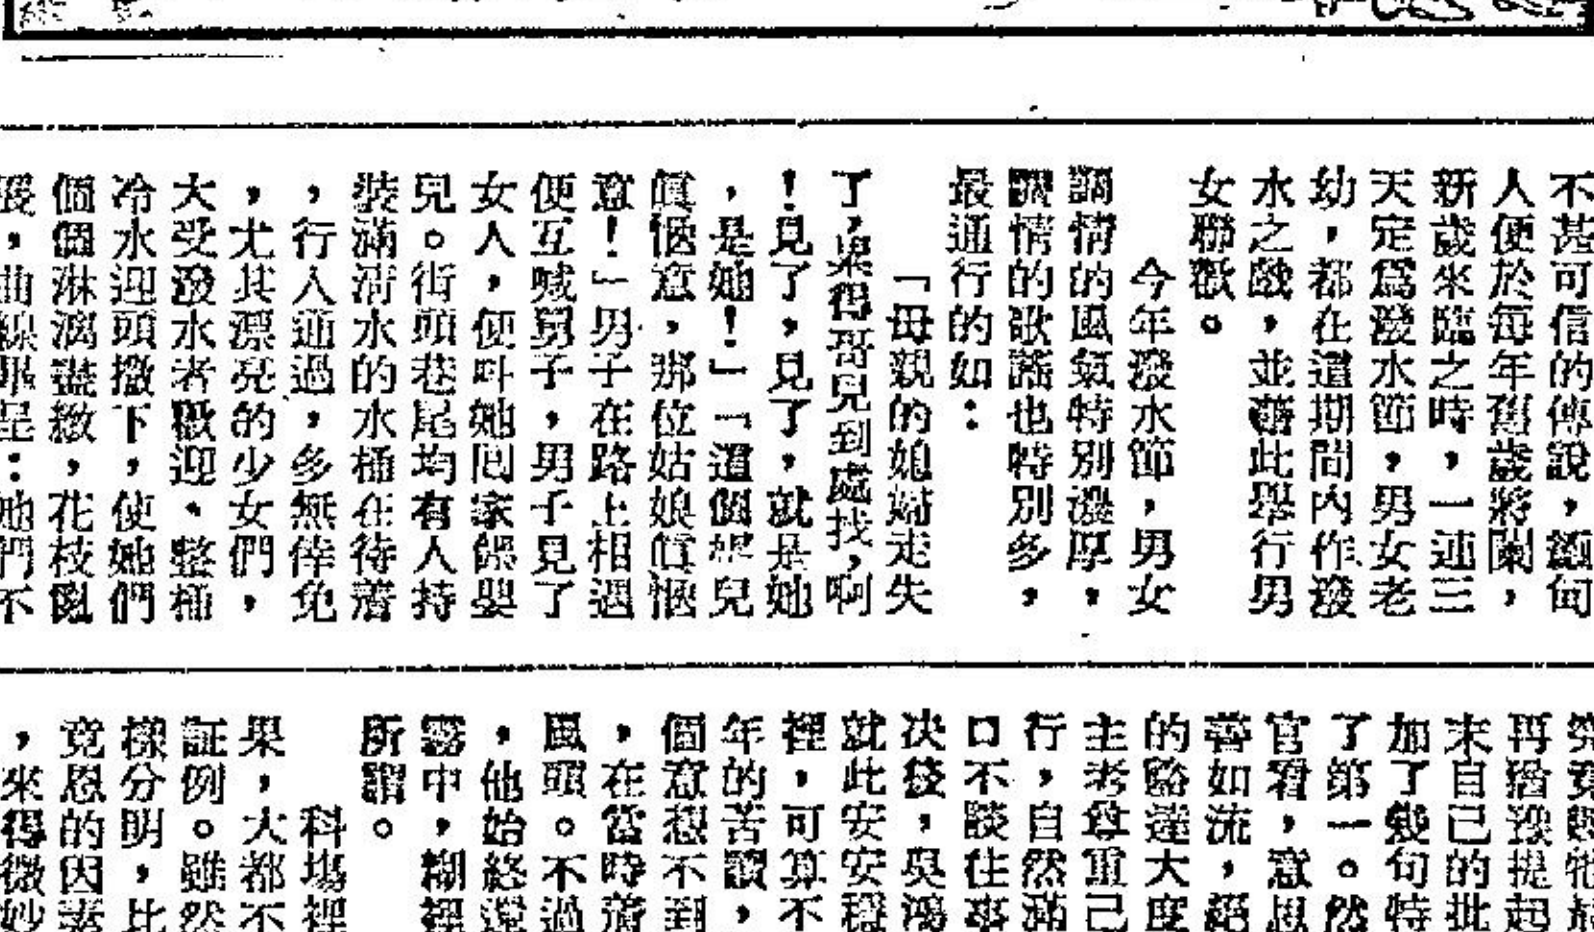 不甚可信的傳說，緬甸
人便於每年舊歲將闌，
新歲來臨之時，一連三
天定爲潑水節，男女老
幼，都在這期間內作潑
水之戲，並藉此舉行男
女聯歡。
今年潑水節，男女
調情的風氣特別濃厚，
調情的歌謠也特別多，
最通行的如：
「母親的媳婦走失
了，累得哥兒到處找，啊
！見了，見了，就是她
，是她！」「這個妮兒
眞愜意，那位姑娘眞愜
意！」男子在路上相遇
便互喊舅子，男子見了
女人，便叫她囘家餵嬰
兒。街頭巷尾均有人持
裝滿清水的水桶在待着
，行人通過，多無倖免
，尤其漂亮的少女們，
大受潑水者歡迎、整桶
冷水迎頭撒下，使她們
個個淋漓盡緻，花枝亂
，曲線畢呈：她們不
再猶豫提起
末自己的批
加了幾句特
了第一。然
官看，意思
善如流，絕
的豁達大度
主考尊重己
行，自然滿
口不談往事
決後，吳鴻
就此安安穩
裡，可算不
年的苦讀，
個意想不到
，在當時着
風頭。不過
，他始終還
霧中，糊裡
所謂。
科塲裡
果，大都不
証例。雖然
樣分明，比
竟恩的因素
，來得微妙